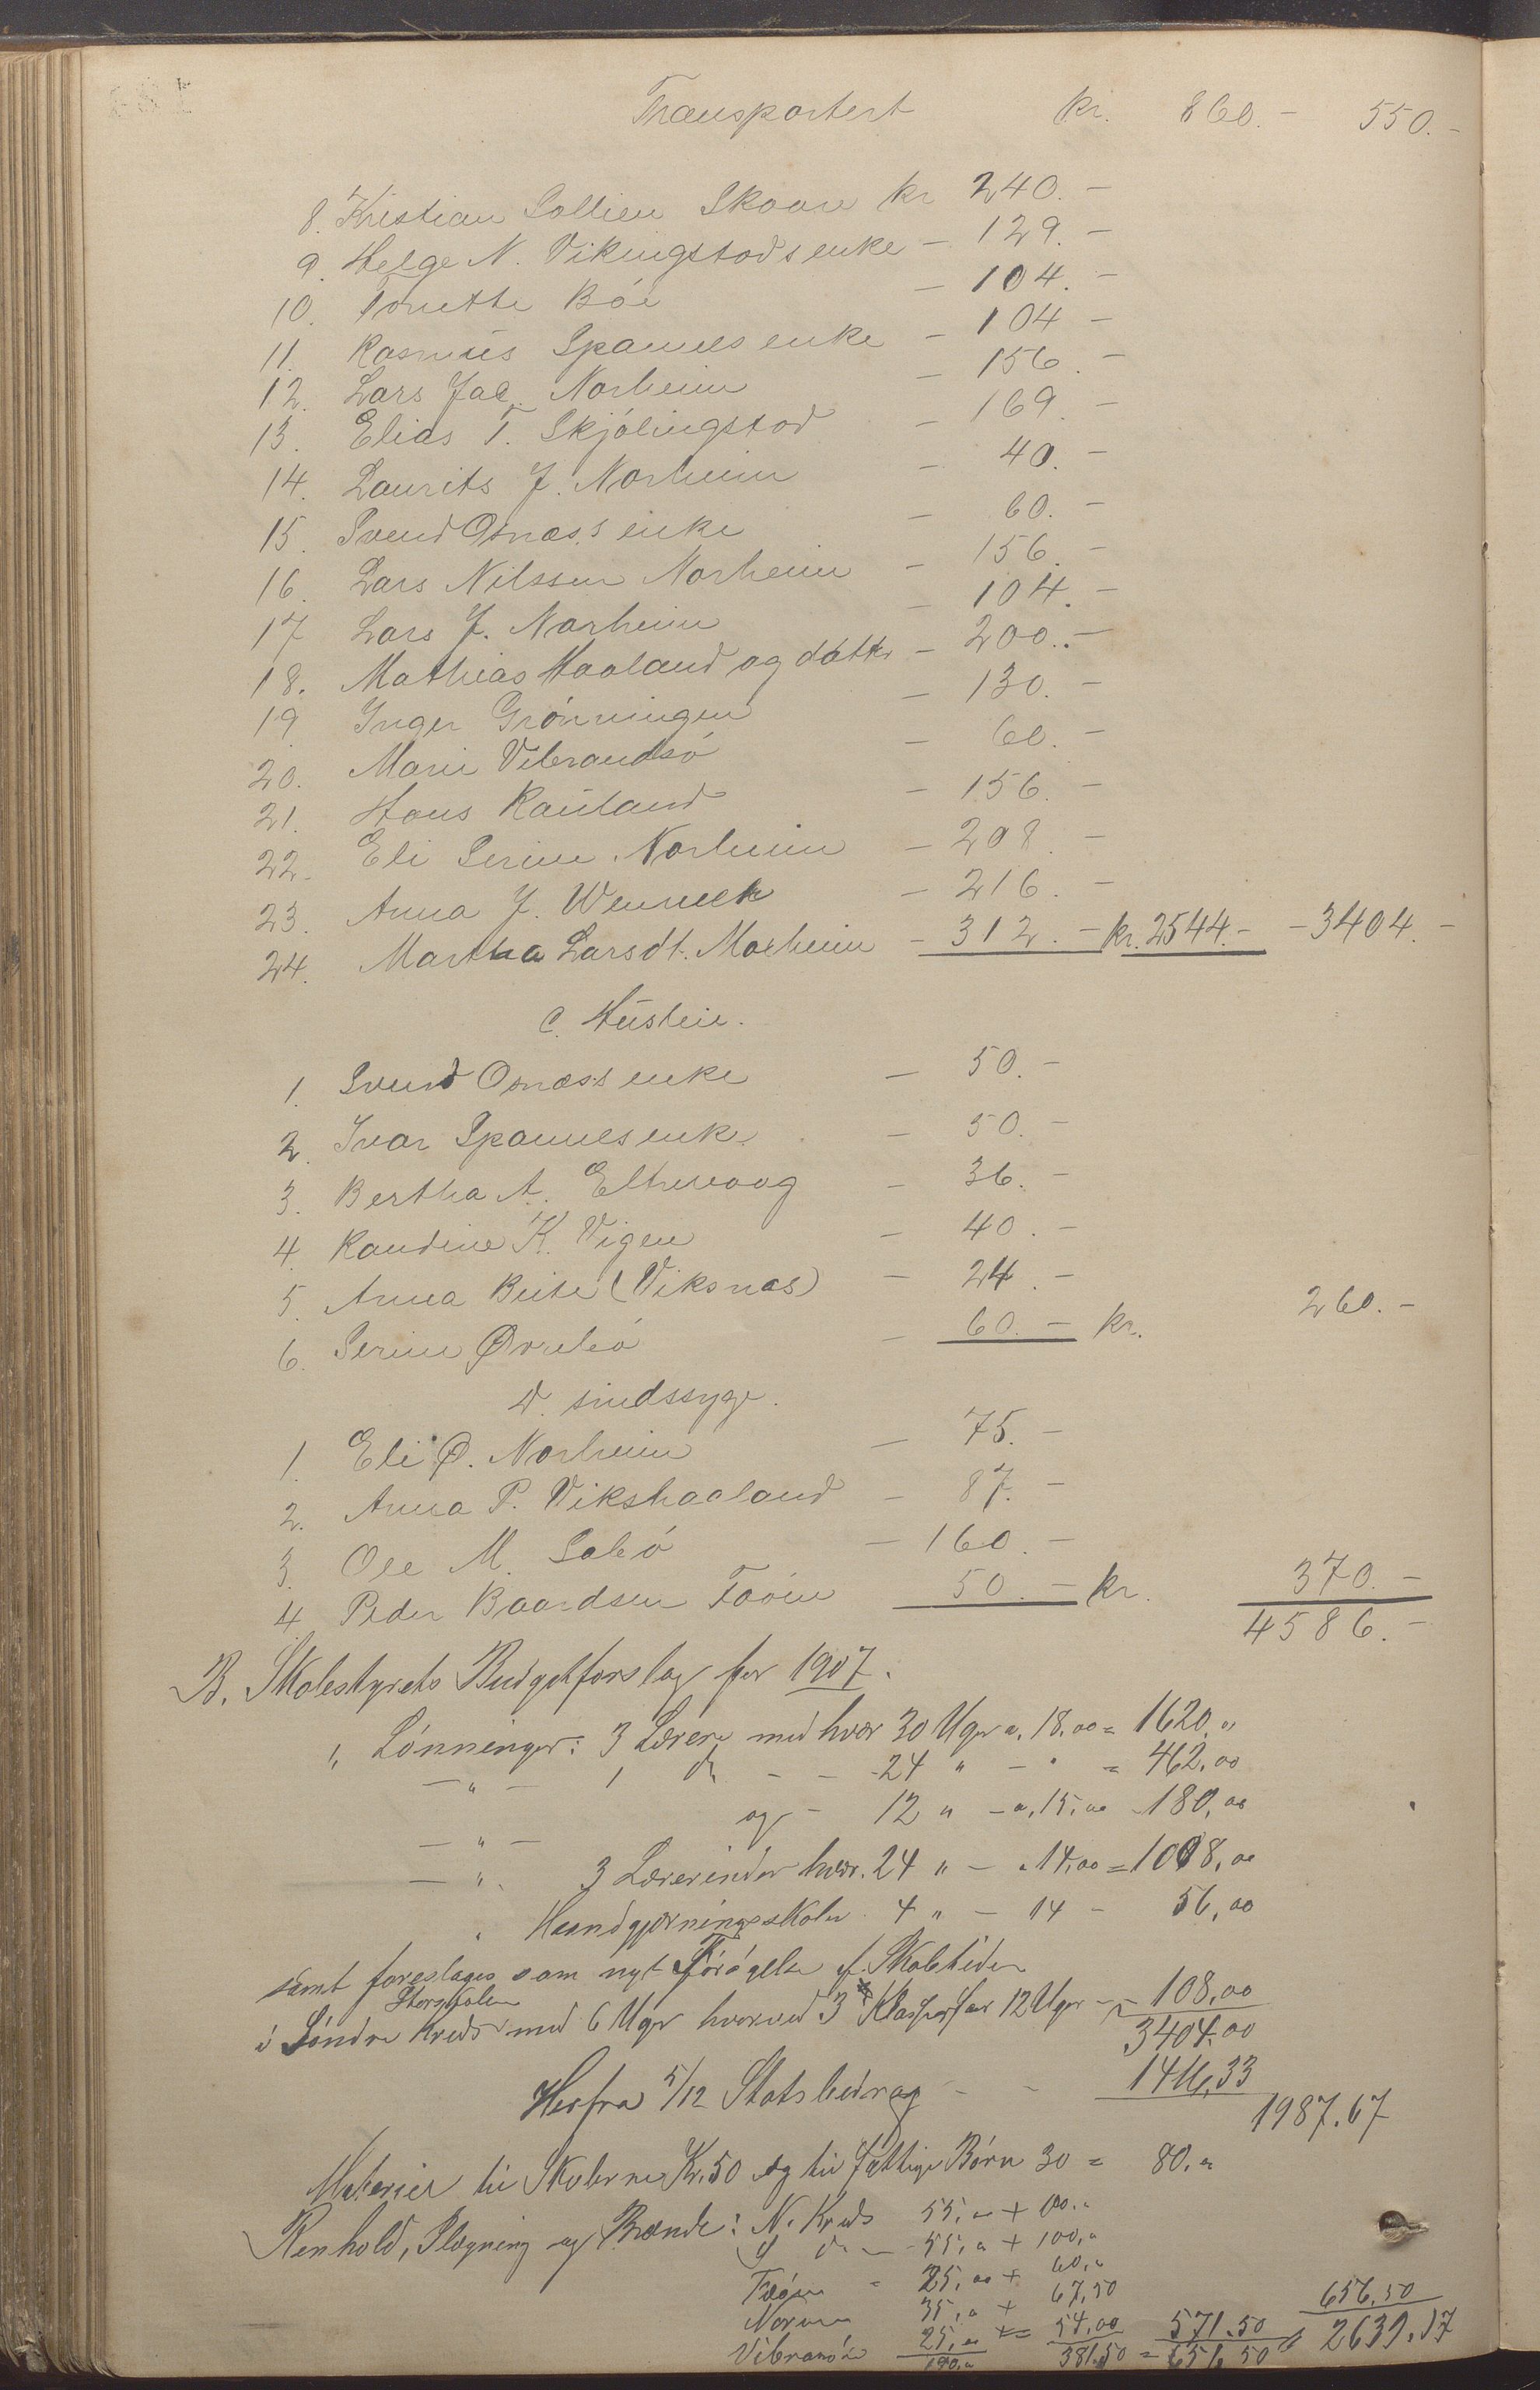 Transportert kr. 860.- 550.-
8. Kristian Sollien Skaar kr 240.-
9. Helge N. Vikingstads enke - 129.-
10. Tonette Böe - 104.-
11. Rasmus Spannes enke - 104 -
12. Lars Jac. Norheim - 156.-
13. Elias T. Skjölingstad - 169.-
14. Laurits J. Norheim - 40.-
15. Svend Osnæs's enke - 60.-
16. Lars Nilssen Norheim - 156.-
17 Lars J. Norheim - 104.-
18. Mathias Haaland og datter - 200.-
19 Inger Grönningen - 130.-
20. Marie Vibrandsö - 60.-
21. Hans Rauland - 156.-
22. Eli Serine Norheim - 208.-
23. Anna J. Wenneck - 216.-
24. Martha Larsdt. Norheim - 312.- kr. 2544.- - 3404.-
C. Husleie.
1. Svend Osnæs's enke - 50.-
2. Ivar Spannes enke - 50.-
3. Bertha A. Eltervaag - 36.-
4. Randine K. Vigen - 40.-
5. Anna Beite (Viksnæs) - 24.-
6. Serine Øvrebö - 60.- kr. 260.-
D. sindssyge.
1. Eli Ø. Norheim - 75.-
2. Anna P. Vikshaaland - 87.-
3. Ole M. Salö - 160.-
4. Peder Baardsen Faöen 50.- kr. 370.-
4586.-
B. Skolestyrets Budgetforslag for 1907.
1, Lönninger: 3 Lærere med hver 30 Uger a. 18.00 = 1620.00
- " - 1 do - - 24 " - " = 462,00
- " - og - 12 " - a. 15,00 180,00
- " - 3 Lærerinder hver. 24 " - " 14,00 = 1008,00
" Haandgjerningsskolen 4 " - 14 - 56,00
samt foreslages som nyt Forögelse af Skoletiden
Storskolen
i Söndre Kreds med 6 Uger hvorved 3 Klasse faar 12 Uger - - 108,00
3404.00
Herfra 5/12 Statsbidrag - - 1416,33
1987.67
Materiel til Skolerne Kr. 50 og til fattige Börn 30 = 80.00
Renhold, Plægning og Brænde: N. Kreds 55,00 + 100.00
S do - 55,00 + 100,00
Faöen - 25,00 + 60,00
Norem 35,00 + 67,50
Vibrandö 25,00 + 54,00 571.50 656,50
190,00 381.50 = 656 50 2639.17